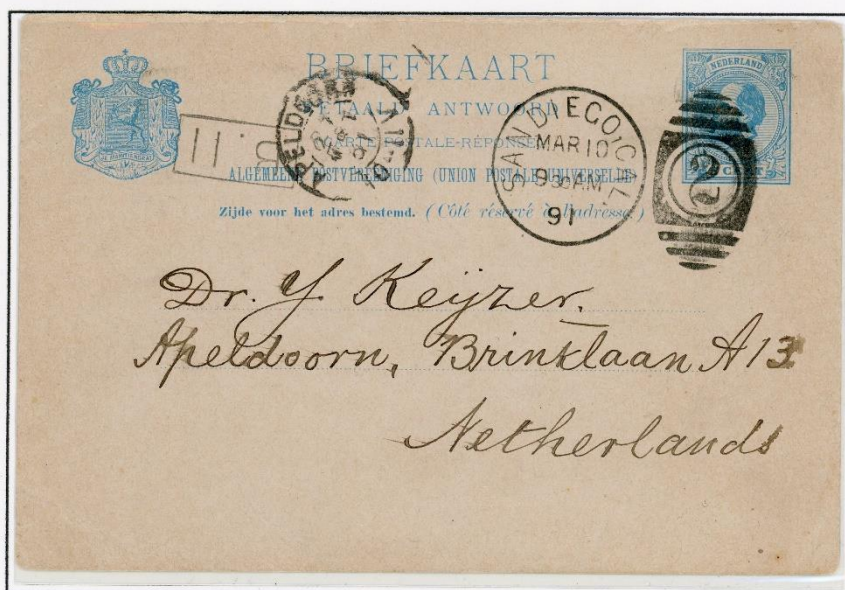 BRIEFKAART
BETAALD ANTWOORD
CARTE POSTALE-RÉPONSE
ALGEMEENE POSTVEREENIGING (UNION POSTALE UNIVERSELLE)
Zijde voor het adres bestemd. (Côté réservé à l'adresse)
NEDERLAND
CENT
APELDOORN
SAN DIEGO, CAL.
MAR 10
930AM
91
2
Dr. Y. Keyzer.
Apeldoorn, Brinklaan A 13
Netherlands